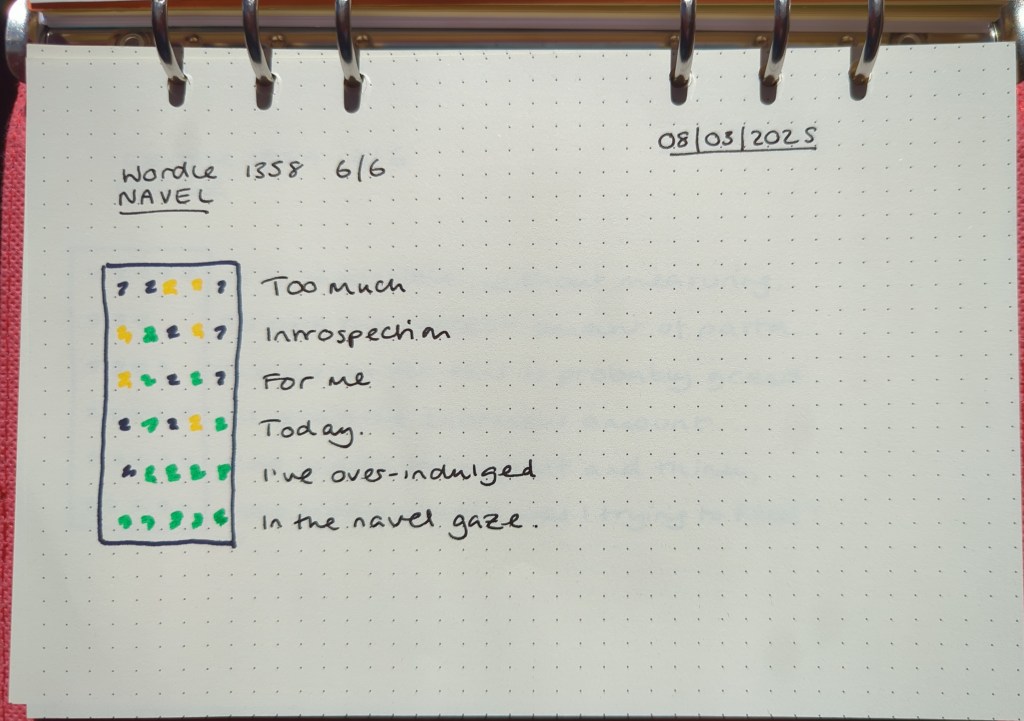 08/03/2025
Wordle 1358 6/6
NAVEL
Too much
Introspection
For me
Today.
I've over-indulged
In the navel gaze.